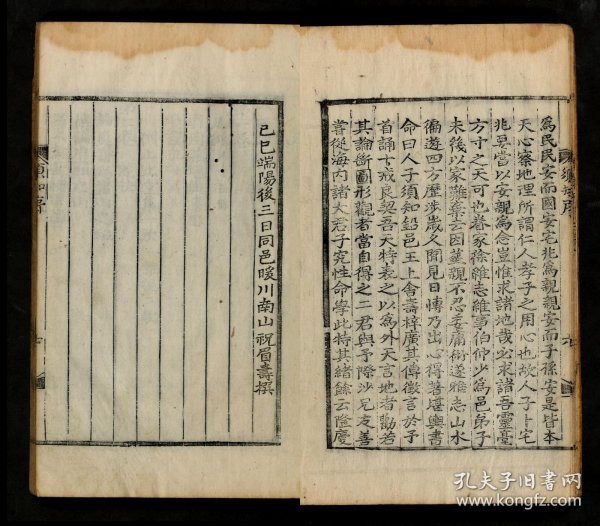 為民民安而國安宅兆為親親安而子孫安是皆本
天心察地理所謂仁人孝子之用心也故人子卜宅
兆要當以安親為念豈惟求諸地哉必求諸吾靈臺
方寸之天可也眷家徐維志維事伯仲少為邑弟子
未後以家難棄去因葬親不忍委庸術遂雅志山水
徧遊四方歷涉歲久聞見日博乃出心得著堪輿書
命曰人子須知鉛邑王上舍壽梓廣其傳徵言於予
首誦十戒良契吾天特表之以為外天言地者勸若
其論衝圖形觀者當自得之二君與予際沙兄友善
嘗從海內諸大君子究性命學此特其緒餘云隆慶
己巳端陽後三日同邑暖川南山祝眉壽撰
須知序
孔夫子旧书网
www.kongfz.com